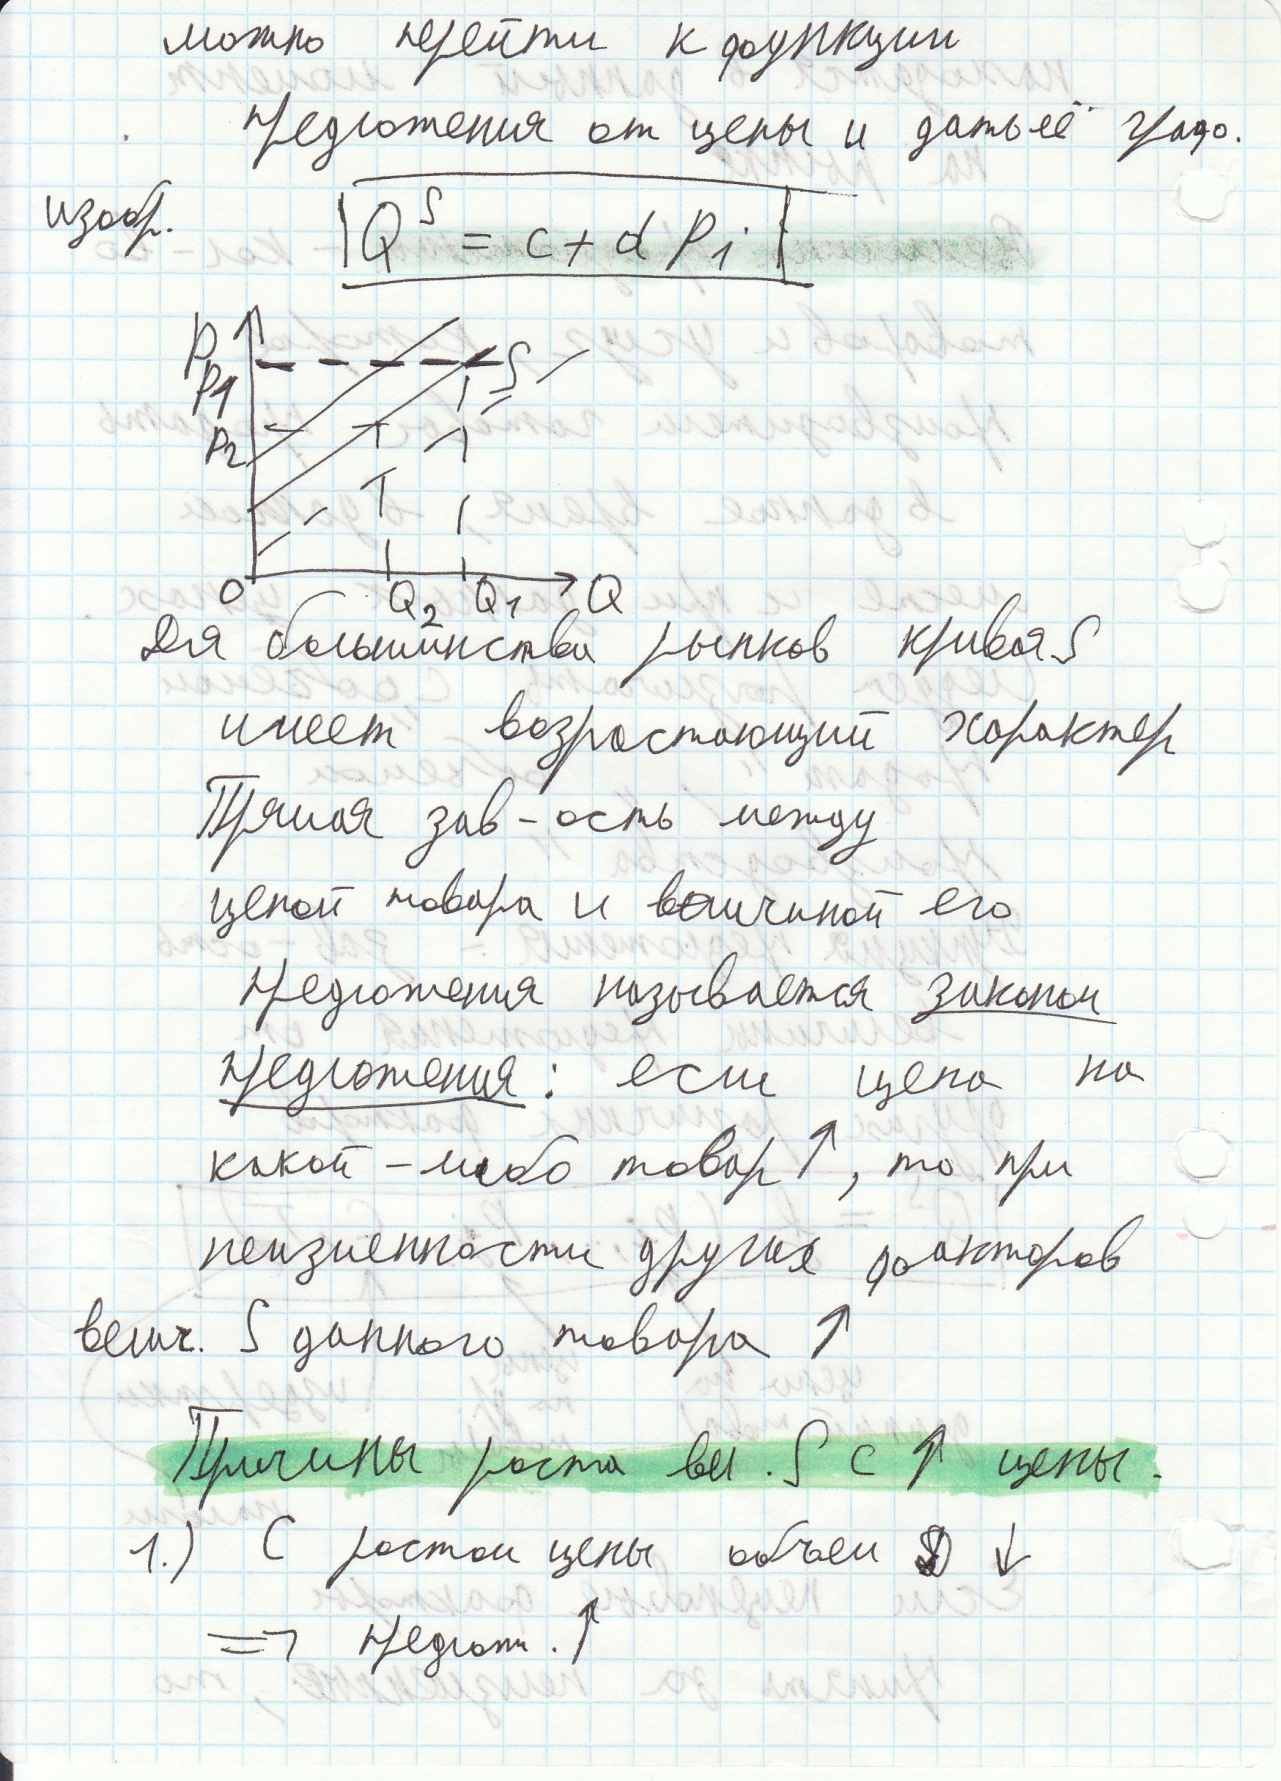 можно перейти к функции
предложения от цены и дать её граф.
изобр.
Q^S = c + d P i
P
P1
S
P2
O
Q2 Q1 Q
Для большинства рынков кривая S
имеет возрастающий характер
Прямая зав-ость между
ценой товара и величиной его
предложения называется законом
предложения: если цена на
какой-либо товар ↑, то при
неизменности других факторов
велич. S данного товара ↑
Причины роста вел. S с ↑ цены.
1.) С ростом цены объём D ↓
=> предлож. ↑